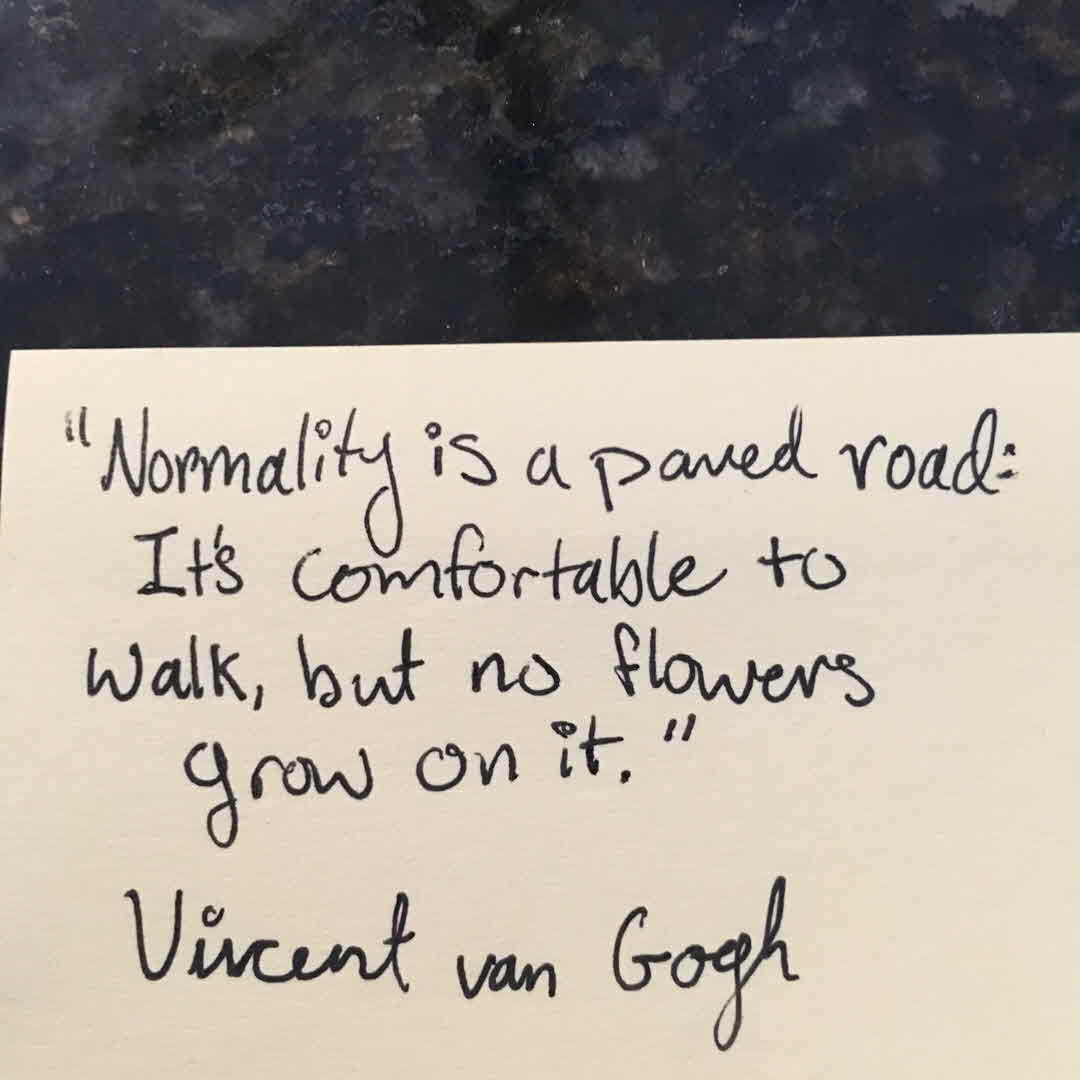 "Normality is a paved road:
It's comfortable to
walk, but no flowers
grow on it."
Vincent van Gogh